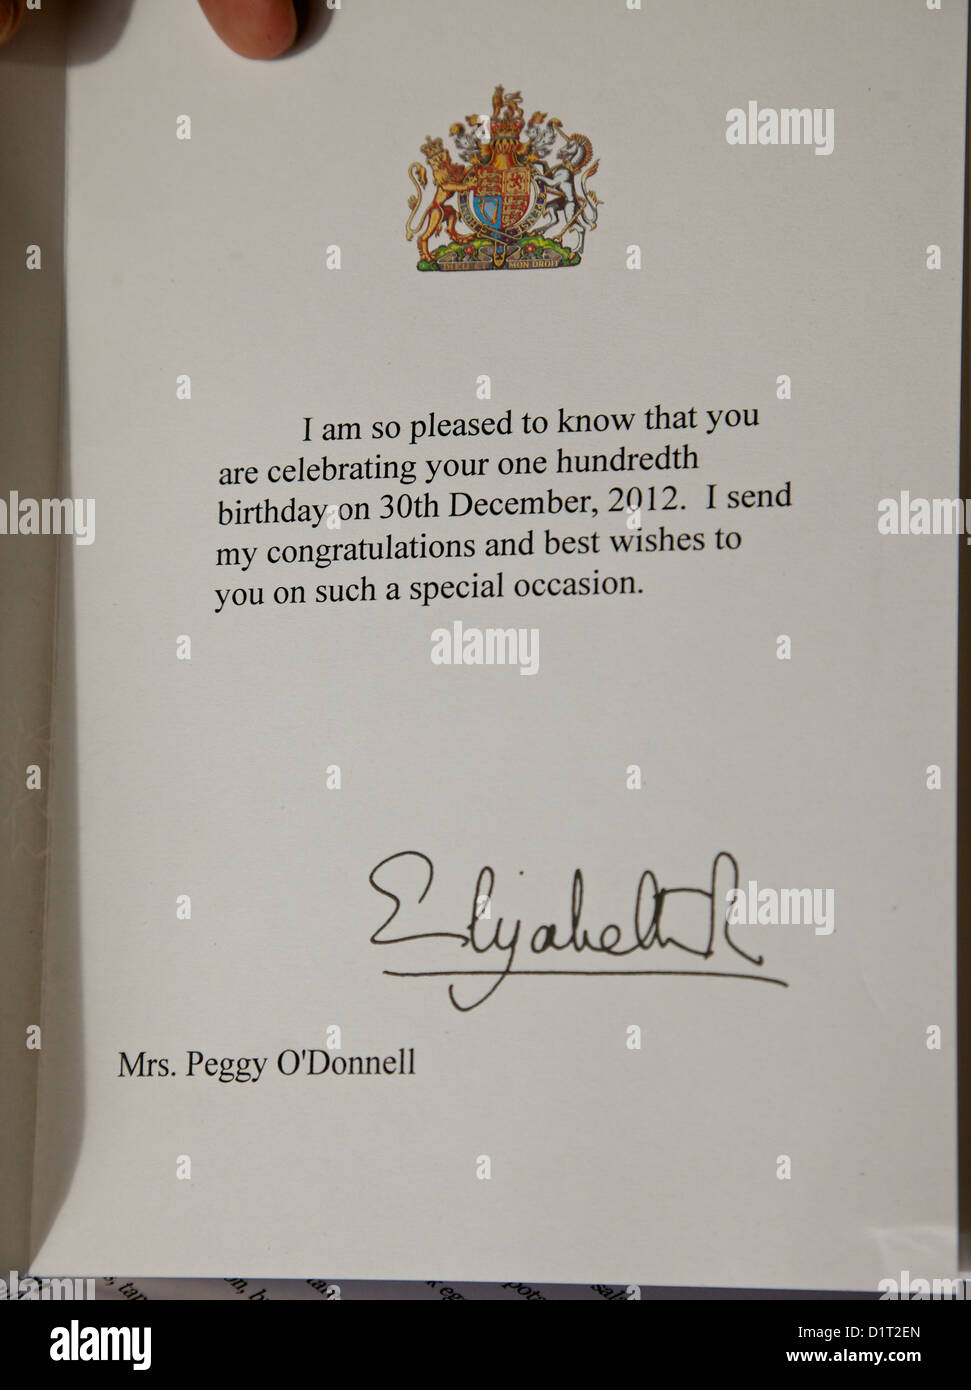 DIEU ET MON DROIT
I am so pleased to know that you
are celebrating your one hundredth
birthday on 30th December, 2012.  I send
my congratulations and best wishes to
you on such a special occasion.
Elizabeth R
Mrs. Peggy O'Donnell
alamy
alamy
Image ID: D1T2EN
www.alamy.com